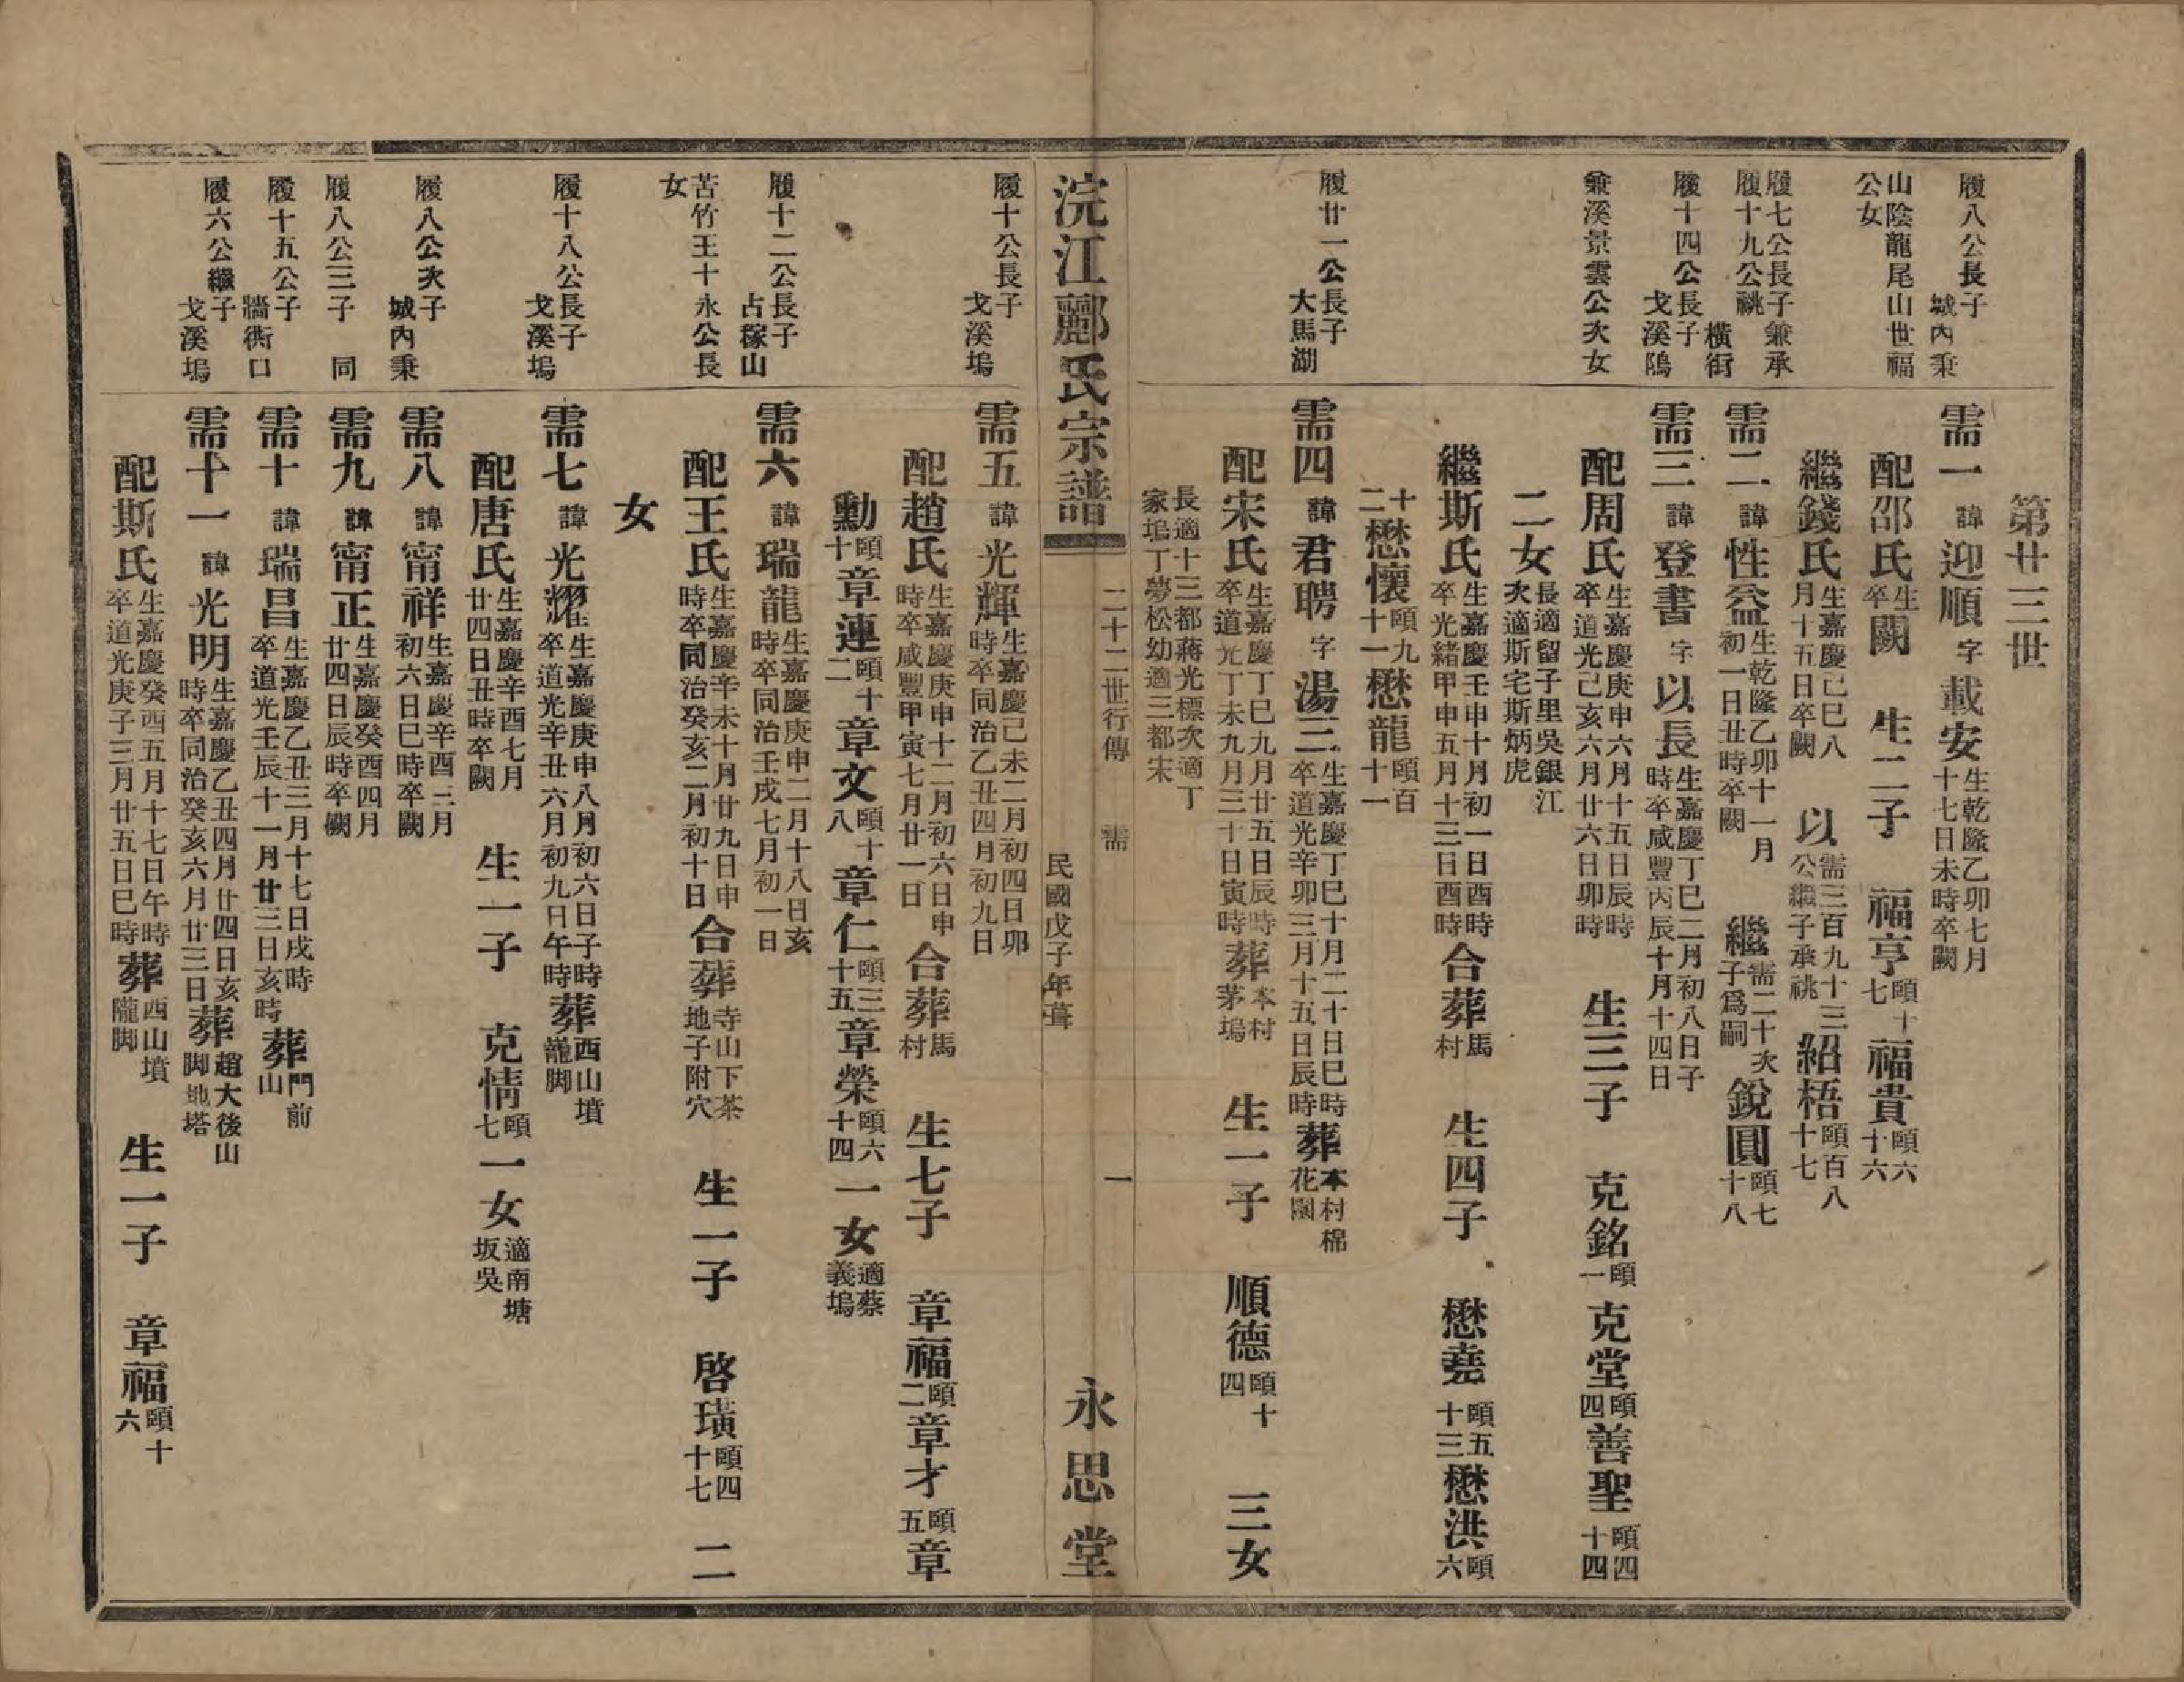 第廿三世
履八公長子 城內秉
需一 諱 迎順 字 載安 生乾隆乙卯七月十七日未時卒闕
山陰龍尾山世福公女
配邵氏 生卒闕 生二子 福亨 頤十七 福貴 頤六十六
繼錢氏 生嘉慶己巳八月十五日卒闕 以 需三百九十三公繼子承祧 紹梧 頤百八十七
履七公長子兼承履十九公祧 橫街
需二 諱 性益 生乾隆乙卯十一月初一日丑時卒闕 繼 需二十次子爲嗣 銳圓 頤七十八
履十四公長子 戈溪隝
需三 諱 登書 字 以長 生嘉慶丁巳二月初八日子時卒咸豐丙辰十月十四日
兼溪景雲公次女
配周氏 生嘉慶庚申六月十五日辰時卒道光己亥六月廿六日卯時 生三子 克銘 頤一 克堂 頤四 善聖 頤四十四
二女 長適留子里吳銀江次適斯宅斯炳虎
繼斯氏 生嘉慶壬申十月初一日酉時卒光緒甲申五月十三日酉時 合葬 馬村 生四子 懋堯 頤五十三 懋洪 頤六
十二 懋懷 頤九十一 懋龍 頤百十一
履廿一公長子 大馬湖
需四 諱 君聘 字 湯三 生嘉慶丁巳十月二十日巳時卒道光辛卯三月十五日辰時 葬 本村棉花園
配宋氏 生嘉慶丁巳九月廿五日辰時卒道光丁未九月三十日寅時 葬 本村茅塢 生一子 順德 頤十四 三女
長適十三都蔣光標次適丁家塢丁夢松幼適三都宋
浣江酈氏宗譜 二十二世行傳 需 民國戊子年葺 一 永思堂
履十公長子 戈溪塢
需五 諱 光輝 生嘉慶己未二月初四日卯時卒同治乙丑四月初九日
配趙氏 生嘉慶庚申十二月初六日申時卒咸豐甲寅七月廿一日 合葬 馬村 生七子 章福 頤二 章才 頤五 章
勳 頤十 章連 頤十二 章文 頤十八 章仁 頤三十五 章榮 頤六十四 一女 適蔡義塢
履十二公長子 占稼山
需六 諱 瑞龍 生嘉慶庚申二月十八日亥時卒同治壬戌七月初一日
苦竹王十永公長女
配王氏 生嘉慶辛未十月廿九日申時卒同治癸亥二月初十日 合葬 寺山下茶地子附穴 生一子 啓璜 頤四十七 二
女
履十八公長子 戈溪塢
需七 諱 光耀 生嘉慶庚申八月初六日子時卒道光辛丑六月初九日午時 葬 西山墳龍脚
配唐氏 生嘉慶辛酉七月廿四日丑時卒闕 生一子 克情 頤七 一女 適南塘坂吳
履八公次子 城內秉
需八 諱 甯祥 生嘉慶辛酉三月初六日巳時卒闕
履八公三子 同
需九 諱 甯正 生嘉慶癸酉四月廿四日辰時卒闕
履十五公子 牆衖口
需十 諱 瑞昌 生嘉慶乙丑三月十七日戌時卒道光壬辰十一月廿三日亥時 葬 門前山
履六公繼子 戈溪塢
需十一 諱 光明 生嘉慶乙丑四月廿四日亥時卒同治癸亥六月廿三日 葬 趙大後山脚地塔
配斯氏 生嘉慶癸酉五月十七日午時卒道光庚子三月廿五日巳時 葬 西山墳隴脚 生一子 章福 頤十六